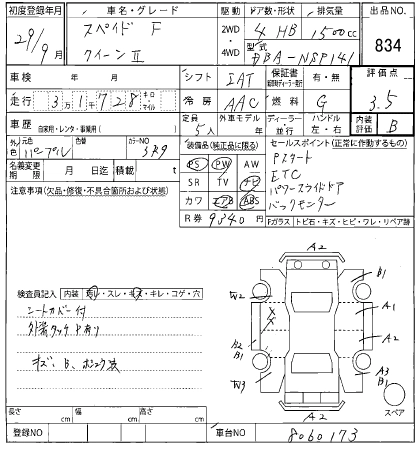 初度登録年月 車名・グレード 駆動 ドア数・形状 排気量 出品NO.
29年 9月 スペイド F クイーンⅡ 2WD・4WD 4 HB 1500cc 834
型式 DBA-NSP141
車検 年 月 シフト IAT 保証書 有・無 評価点
走行 3万1千728 キロ マイル 冷房 AAC 燃料 G 3.5
車歴 自家用・レンタ・事業用( ) 定員 5人 外車モデル 年 ディーラー 並行 ハンドル 左・右 内装評価 B
外色 元色 パープル 色替 カラーNO 3R9
装備品(純正品に限る)
セールスポイント(正常に作動するもの)
名義変更期限 月 日迄 積載 t
PS PW AW
SR TV ナビ
カワ エアB ABS
R券 9340円
Pスタート
ETC
パワースライドドア
バックモニター
注意事項(欠品・修復・不具合箇所および状態)
Fガラス トビ石・キズ・ヒビ・ワレ・リペア跡
検査員記入 内装 ヨゴレ・スレ・キズ・キレ・コゲ・穴
シートカバー付
外装タッチPあり
キズ:B、
A2
W2
B1
A1
A2
B2
B1
A3
B1
W3
A2
スペア
長さ cm 幅 cm 高さ cm
登録NO 車台NO 8060173